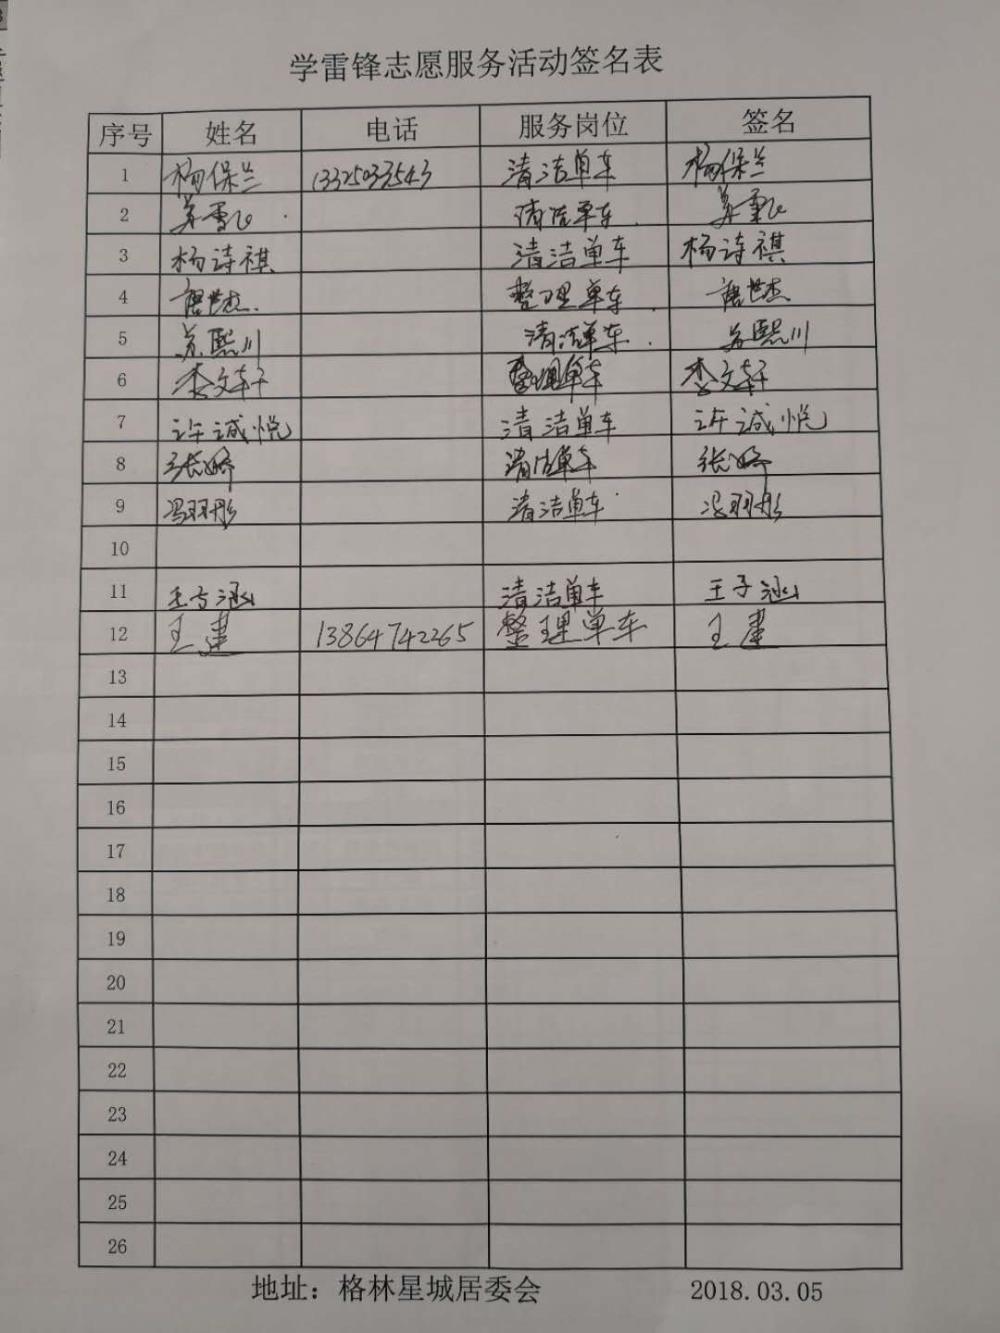 学雷锋志愿服务活动签名表
序号 姓名 电话 服务岗位 签名
1 杨保兰 13325033543 清洁单车 杨保兰
2 清洁单车
3 杨诗祺 清洁单车 杨诗祺
4 唐世杰 整理单车 唐世杰
5 苏熙川 清洁单车 苏熙川
6 李文轩 整理单车 李文轩
7 许诚悦 清洁单车 许诚悦
8 张娇 清洁单车 张娇
9 冯羽彤 清洁单车 冯羽彤
10
11 王子涵 清洁单车 王子涵
12 王建 13864742265 整理单车 王建
13
14
15
16
17
18
19
20
21
22
23
24
25
26
地址：格林星城居委会 2018.03.05